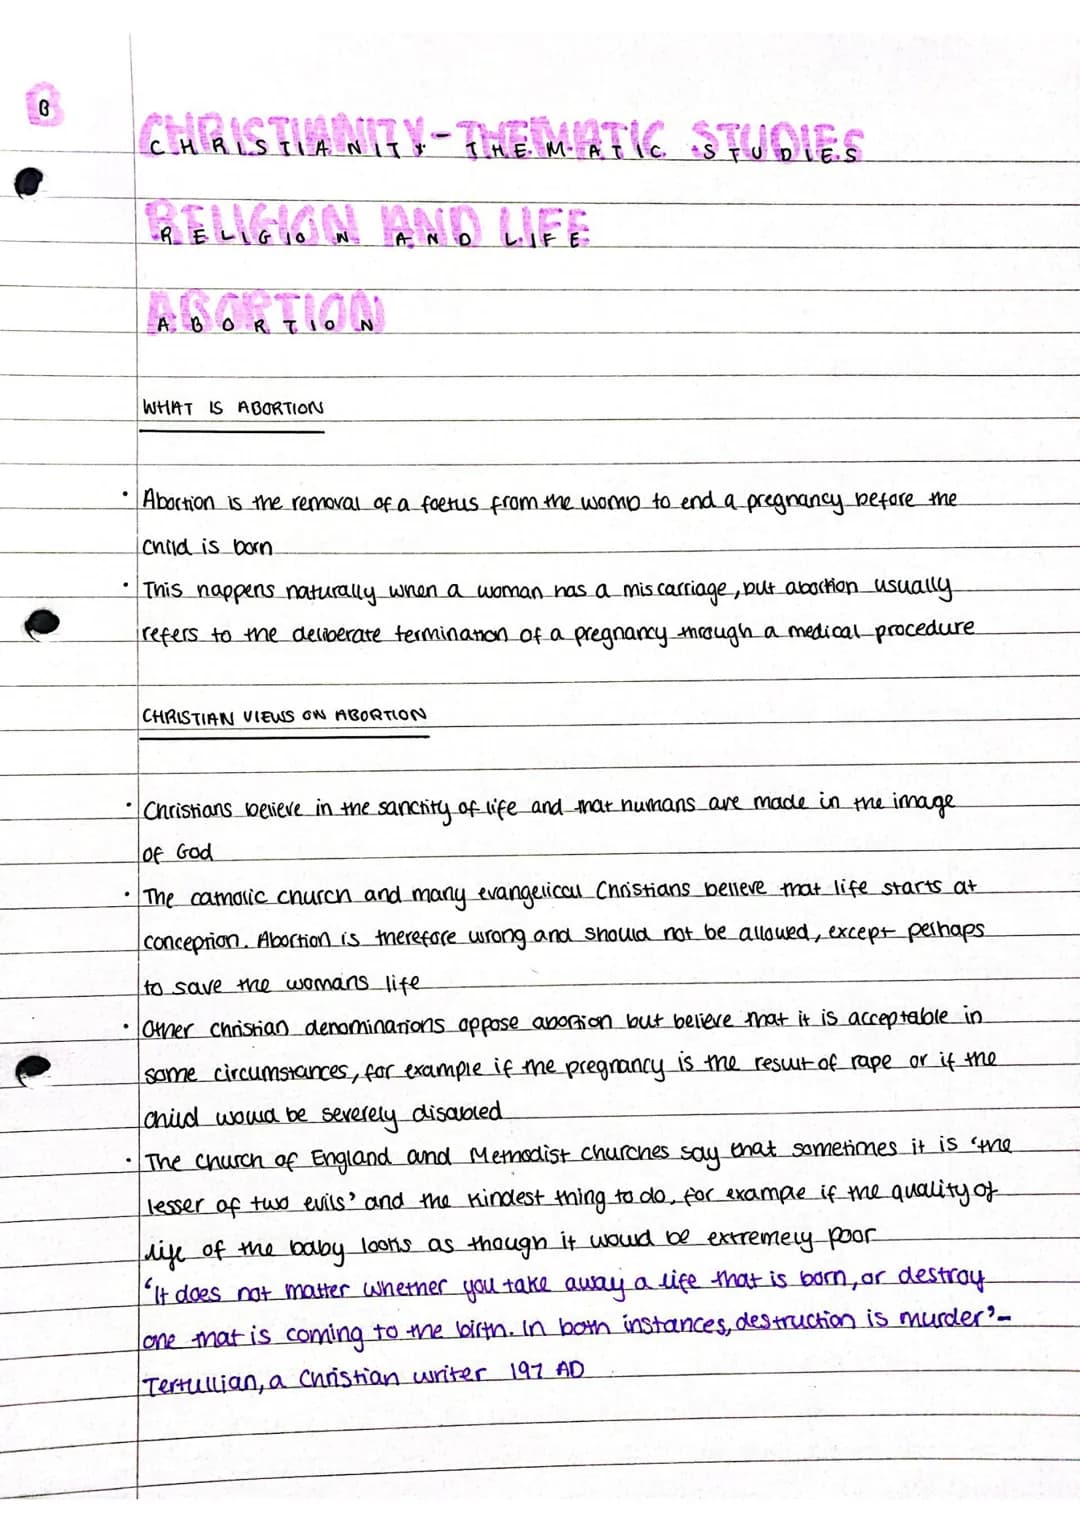 B
CHRISTIANITY-THEMATIC STUDIES
RELIGION AND LIFE
ABORTION
WHAT IS ABORTION
• Abortion is the removal of a foetus from the womb to end a pregnancy before the
child is born
• This happens naturally when a woman has a miscarriage, but abortion usually
refers to the deliberate termination of a pregnancy through a medical procedure
CHRISTIAN VIEWS ON ABORTION
• Christians believe in the sanctity of life and that humans are made in the image
of God
• The catholic church and many evangelical Christians believe that life starts at
conception. Abortion is therefore wrong and should not be allowed, except perhaps
to save the womans life
• Other christian denominations oppose abortion but believe that it is acceptable in
some circumstances, for example if the pregnancy is the result of rape or if the
child would be severely disabled
• The church of England and Methodist churches say that sometimes it is 'the
lesser of two evils' and the kindest thing to do, for example if the quality of
life of the baby looks as though it would be extremely poor
'It does not matter whether you take away a life that is born, or destroy
one that is coming to the birth. In both instances, destruction is murder'-
Tertullian, a Christian writer 197 AD